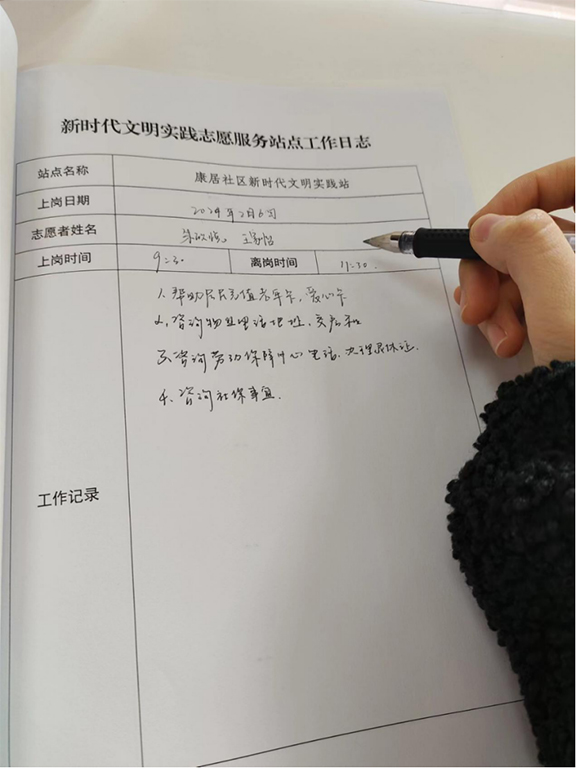 新时代文明实践志愿服务站点工作日志
站点名称 康居社区新时代文明实践站
上岗日期 2024年2月6日
志愿者姓名
上岗时间 9:30 离岗时间 11:30.
工作记录
1. 帮助居民充值老年卡, 爱心卡
2. 咨询物业电话地址, 交房租
3. 咨询劳动保障中心电话, 办理退休证.
4. 咨询社保事宜.